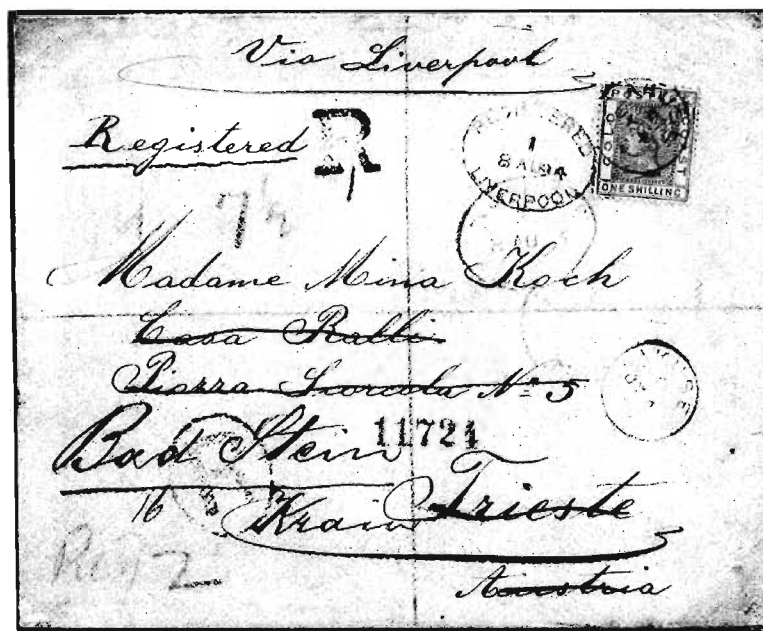 Via Liverpool
Registered R
REGISTERED
1
8 AU 94
LIVERPOOL
GOLD COAST
POSTAGE
ONE SHILLING
7½
Madame Mina Koch
Casa Ralli
Piazza Scorcola No 5
Bad Stein 11724
16 Krain Trieste
Austria